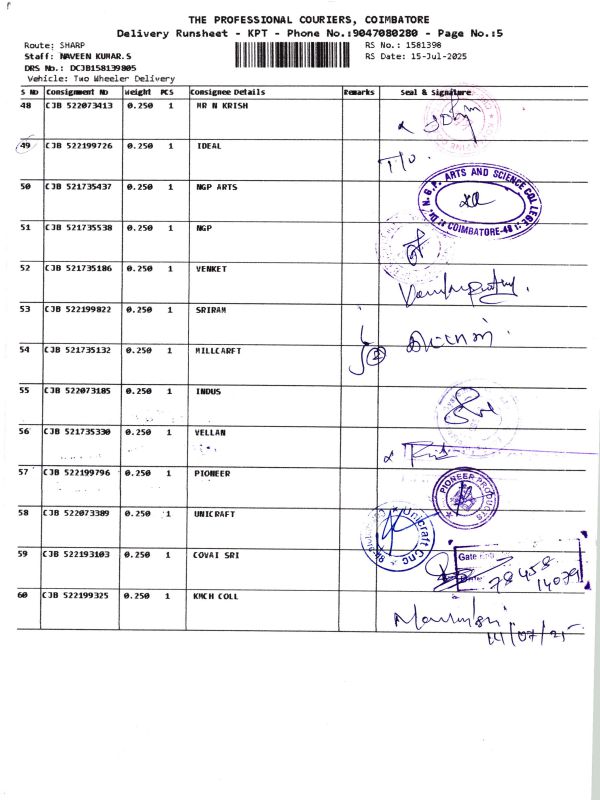 THE PROFESSIONAL COURIERS, COIMBATORE
Delivery Runsheet - KPT - Phone No.:9047080280 - Page No.:5
Route: SHARP
RS No. : 1581398
Staff: NAVEEN KUMAR.S
RS Date: 15-Jul-2025
DRS No.: DCJB158139805
Vehicle: Two Wheeler Delivery
S No Consignment No Weight PCS Consignee Details Remarks Seal & Signature
48 CJB 522073413 0.250 1 MR N KRISH
49 CJB 522199726 0.250 1 IDEAL
T/o.
50 CJB 521735437 0.250 1 NGP ARTS
Dr. N. G. P. ARTS AND SCIENCE COLLEGE
COIMBATORE-48
51 CJB 521735538 0.250 1 NGP
52 CJB 521735186 0.250 1 VENKET
53 CJB 522199822 0.250 1 SRIRAM
54 CJB 521735132 0.250 1 MILLCARFT
2
55 CJB 522073185 0.250 1 INDUS
56 CJB 521735330 0.250 1 VELLAN
57 CJB 522199796 0.250 1 PIONEER
PIONEER PRODUCTS
58 CJB 522073389 0.250 1 UNICRAFT
Unicraft CNC
59 CJB 522193103 0.250 1 COVAI SRI
Gate
78458
14079
60 CJB 522199325 0.250 1 KMCH COLL
14/07/25